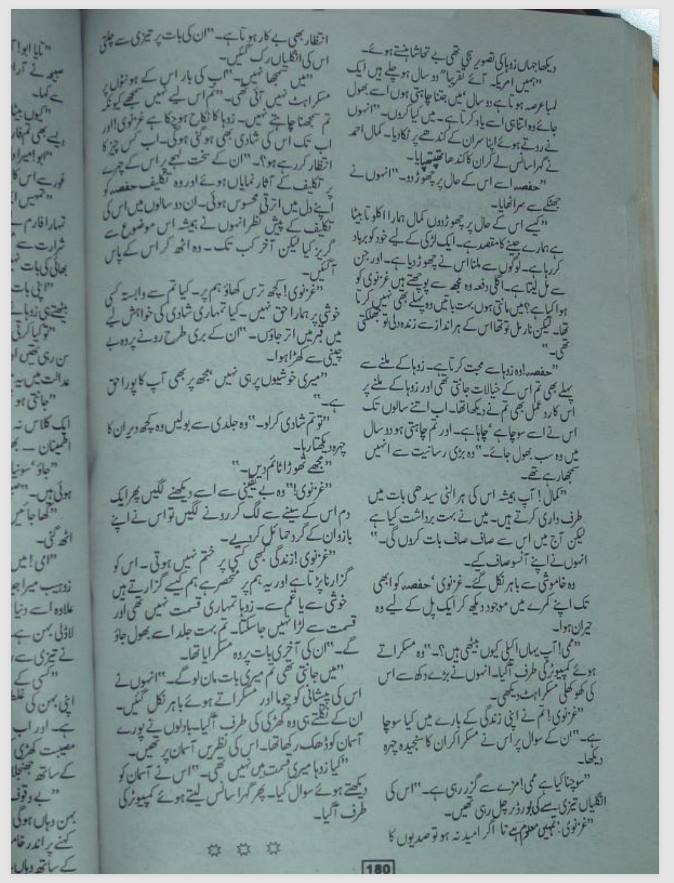 دیکھا جہاں زوہا کی تصویر سجی تھی بے تحاشا ہنستے ہوئے۔
"ہمیں امریکہ آئے تقریباً" دو سال ہو چلے ہیں ایک
لمبا عرصہ ہوتا ہے دو سال، میں جتنا چاہتی ہوں اسے بھول
جائے وہ اتنا ہی اسے یاد کرتا ہے۔ میں کیا کروں۔" انہوں
نے روتے ہوئے اپنا سر ان کے کندھے پر ٹکا دیا۔ کمال احمد
نے گہرا سانس لے کر ان کا کندھا تھپتھپایا۔
"حفصہ! اسے اس کے حال پر چھوڑ دو۔" انہوں نے
جھٹکے سے سر اٹھایا۔
"کیسے اس کے حال پر چھوڑ دوں کمال ہمارا اکلوتا بیٹا
ہے ہمارے جینے کا مقصد ہے۔ ایک لڑکی کے لیے خود کو برباد
کر رہا ہے۔ لوگوں سے ملنا اس نے چھوڑ دیا ہے۔ اور جن
سے مل لیتا ہے۔ اگلی دفعہ وہ مجھ سے پوچھتے ہیں غزنوی کو
ہوا کیا ہے؟ میں مانتی ہوں بہت باتیں وہ پہلے بھی نہیں کرتا
تھا۔ لیکن نارمل تو تھا اس کے ہر انداز سے زندہ دلی تو جھلکتی
تھی۔"
"حفصہ! وہ زوہا سے محبت کرتا ہے۔ زوہا کے ملنے سے
پہلے بھی تم اس کے خیالات جانتی تھی اور زوہا کے ملنے پر
اس کا ردعمل بھی تم نے دیکھا تھا۔ اب اتنے سالوں تک
اس نے اسے سوچا ہے، چاہا ہے۔ اور تم چاہتی ہو دو سال
میں وہ سب بھول جائے۔" وہ بڑی رسانیت سے انہیں
سمجھا رہے تھے۔
"کمال! آپ ہمیشہ اس کی ہر الٹی سیدھی بات میں
طرف داری کرتے ہیں۔ میں نے بہت برداشت کیا ہے
لیکن آج میں اس سے صاف صاف بات کروں گی۔"
انہوں نے اپنے آنسو صاف کیے۔
وہ خاموشی سے باہر نکل گئے۔ غزنوی، حفصہ کو ابھی
تک اپنے کمرے میں موجود دیکھ کر ایک پل کے لیے وہ
حیران ہوا۔
"ممی! آپ یہاں اکیلی کیوں بیٹھی ہیں؟۔" وہ مسکراتے
ہوئے کمپیوٹر کی طرف آگیا۔ انہوں نے بڑے دکھ سے اس
کی کھوکھلی مسکراہٹ دیکھی۔
"غزنوی! تم نے اپنی زندگی کے بارے میں کیا سوچا
ہے۔" ان کے سوال پر اس نے مسکرا کر ان کا سنجیدہ چہرہ
دیکھا۔
"سوچنا کیا ہے ممی! مزے سے گزر رہی ہے۔" اس کی
انگلیاں تیزی سے کی بورڈ پر چل رہی تھیں۔
"غزنوی! تمہیں معلوم ہے نا اگر امید نہ ہو تو صدیوں کا
انتظار بھی بے کار ہوتا ہے۔" ان کی بات پر تیزی سے چلتی
اس کی انگلیاں رک گئیں۔
"میں سمجھا نہیں۔" آپ کی بار اس کے ہونٹوں پر
مسکراہٹ نہیں آئی تھی۔ "تم اس لیے نہیں سمجھے کیونکہ
تم سمجھنا چاہتے نہیں۔ زوہا کا نکاح ہو چکا ہے غزنوی! اور
اب تک اس کی شادی بھی ہو گئی ہوگی۔ اب کس چیز کا
انتظار کر رہے ہو؟۔" ان کے سخت لہجے پر اس کے چہرے
پر تکلیف کے آثار نمایاں ہوئے اور وہ تکلیف حفصہ کو
اپنے دل میں اترتی محسوس ہوئی۔ ان دو سالوں میں اس کی
تکلیف کے پیش نظر انہوں نے ہمیشہ اس موضوع سے
گریز کیا لیکن آخر کب تک۔ وہ اٹھ کر اس کے پاس
آگئیں۔
"غزنوی! کچھ ترس کھاؤ ہم پر۔ کیا تم سے وابستہ کسی
خوشی پر ہمارا حق نہیں۔ کیا تمہاری شادی کی خواہش لیے
میں قبر میں اتر جاؤں۔" ان کے بری طرح رونے پر وہ بے
چینی سے کھڑا ہوا۔
"میری خوشیوں پر ہی نہیں، مجھ پر بھی آپ کا پورا حق
ہے۔"
"تو تم شادی کرلو۔" وہ جلدی سے بولیں وہ کچھ دیر ان کا
چہرہ دیکھتا رہا۔
"مجھے تھوڑا ٹائم دیں۔"
"غزنوی!" وہ بے یقینی سے اسے دیکھنے لگیں پھر ایک
دم اس کے سینے سے لگ کر رونے لگیں تو اس نے اپنے
بازو ان کے گرد حمائل کر دیے۔
"غزنوی! زندگی کبھی کسی پر ختم نہیں ہوتی۔ اس کو
گزارنا پڑتا ہے اور یہ ہم پر منحصر ہے ہم کیسے گزارتے ہیں
خوشی سے یا غم سے۔ زوہا تمہاری قسمت نہیں تھی اور
قسمت سے لڑا نہیں جاسکتا۔ تم بہت جلد اسے بھول جاؤ
گے۔" ان کی آخری بات پر وہ مسکرایا تھا۔
"میں جانتی تھی تم میری بات مان لو گے۔" انہوں نے
اس کی پیشانی کو چوما اور مسکراتے ہوئے باہر نکل گئیں۔
ان کے نکلتے ہی وہ کھڑکی کی طرف آگیا۔ بادلوں نے پورے
آسمان کو ڈھک رکھا تھا۔ اس کی نظریں آسمان پر تھیں۔
"کیا زوہا میری قسمت میں نہیں تھی۔" اس نے آسمان کو
دیکھتے ہوئے سوال کیا۔ پھر گہرا سانس لیتے ہوئے کمپیوٹر کی
طرف آگیا۔
180